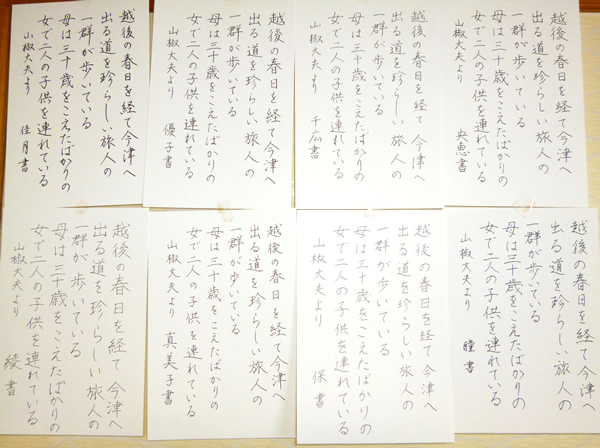 越後の春日を経て今津へ
出る道を珍らしい旅人の
一群が歩いている
母は三十歳をこえたばかりの
女で二人の子供を連れている
山椒大夫より 央恵書
越後の春日を経て今津へ
出る道を珍らしい旅人の
一群が歩いている
母は三十歳をこえたばかりの
女で二人の子供を連れている
山椒大夫より 千広書
越後の春日を経て今津へ
出る道を珍らしい旅人の
一群が歩いている
母は三十歳をこえたばかりの
女で二人の子供を連れている
山椒大夫より 優子書
越後の春日を経て今津へ
出る道を珍らしい旅人の
一群が歩いている
母は三十歳をこえたばかりの
女で二人の子供を連れている
山椒大夫より 佳月書
越後の春日を経て今津へ
出る道を珍らしい旅人の
一群が歩いている
母は三十歳をこえたばかりの
女で二人の子供を連れている
山椒大夫より 瞳書
越後の春日を経て今津へ
出る道を珍らしい旅人の
一群が歩いている
母は三十歳をこえたばかりの
女で二人の子供を連れている
山椒大夫より 保書
越後の春日を経て今津へ
出る道を珍らしい旅人の
一群が歩いている
母は三十歳をこえたばかりの
女で二人の子供を連れている
山椒大夫より 真美子書
越後の春日を経て今津へ
出る道を珍らしい旅人の
一群が歩いている
母は三十歳をこえたばかりの
女で二人の子供を連れている
山椒大夫より 綾書